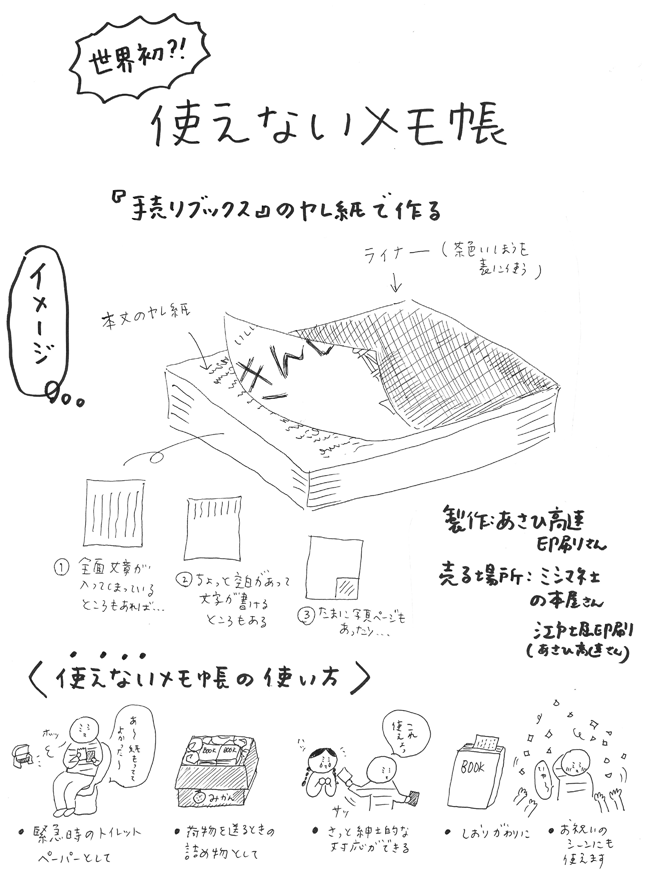 世界初?!
使えないメモ帳
『手売りブックス』のヤレ紙で作る
イメージ
ライナー(茶色いほうを
表に使う)
本文のヤレ紙
①全面文章が
入ってしまっている
ところもあれば…
②ちょっと空白があって
文字が書ける
ところもある
③たまに写真ページも
あったり…
製作:あさひ高速
印刷さん
売る場所:ミシマ社
の本屋さん
江戸堀印刷
(あさひ高速さん)
〈使えないメモ帳の使い方〉
ホッ
あ〜紙もってて
よかった〜
BOOK
BOOK
みかん
これ
使えよ
サッ
BOOK
•緊急時のトイレット
ペーパーとして
•荷物を送るときの
詰め物として
•さっと紳士的な
対応ができる
•しおりがわりに
•お祝いの
シーンにも
使えます